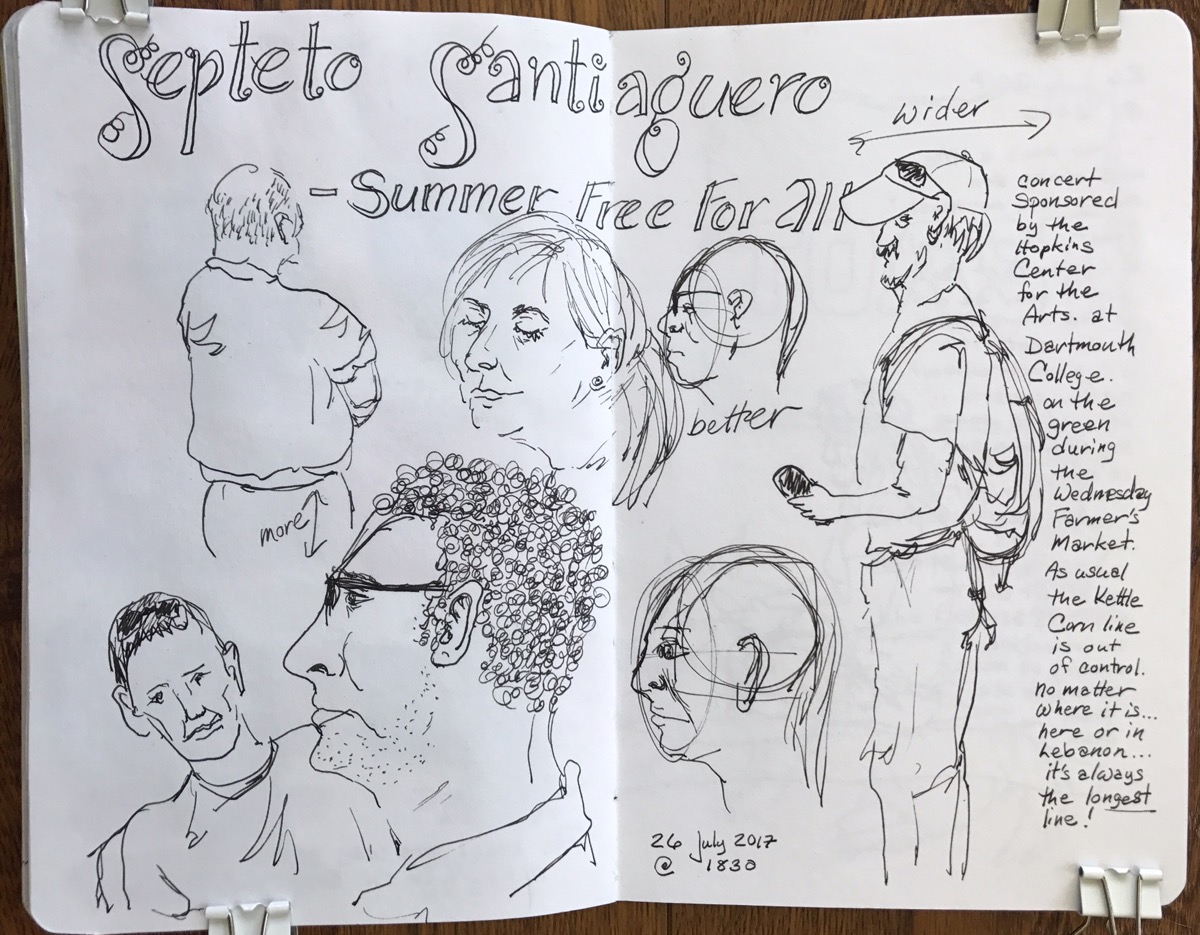 Septeto Santiaguero
- Summer Free For All
wider
better
more
26 July 2017
@ 1830
concert
Sponsored
by the
Hopkins
Center
for the
Arts. at
Dartmouth
College.
on the
green
during
the
Wednesday
Farmer's
Market.
As usual
the Kettle
Corn line
is out
of control.
no matter
where it is...
here or in
Lebanon...
it's always
the longest
line!